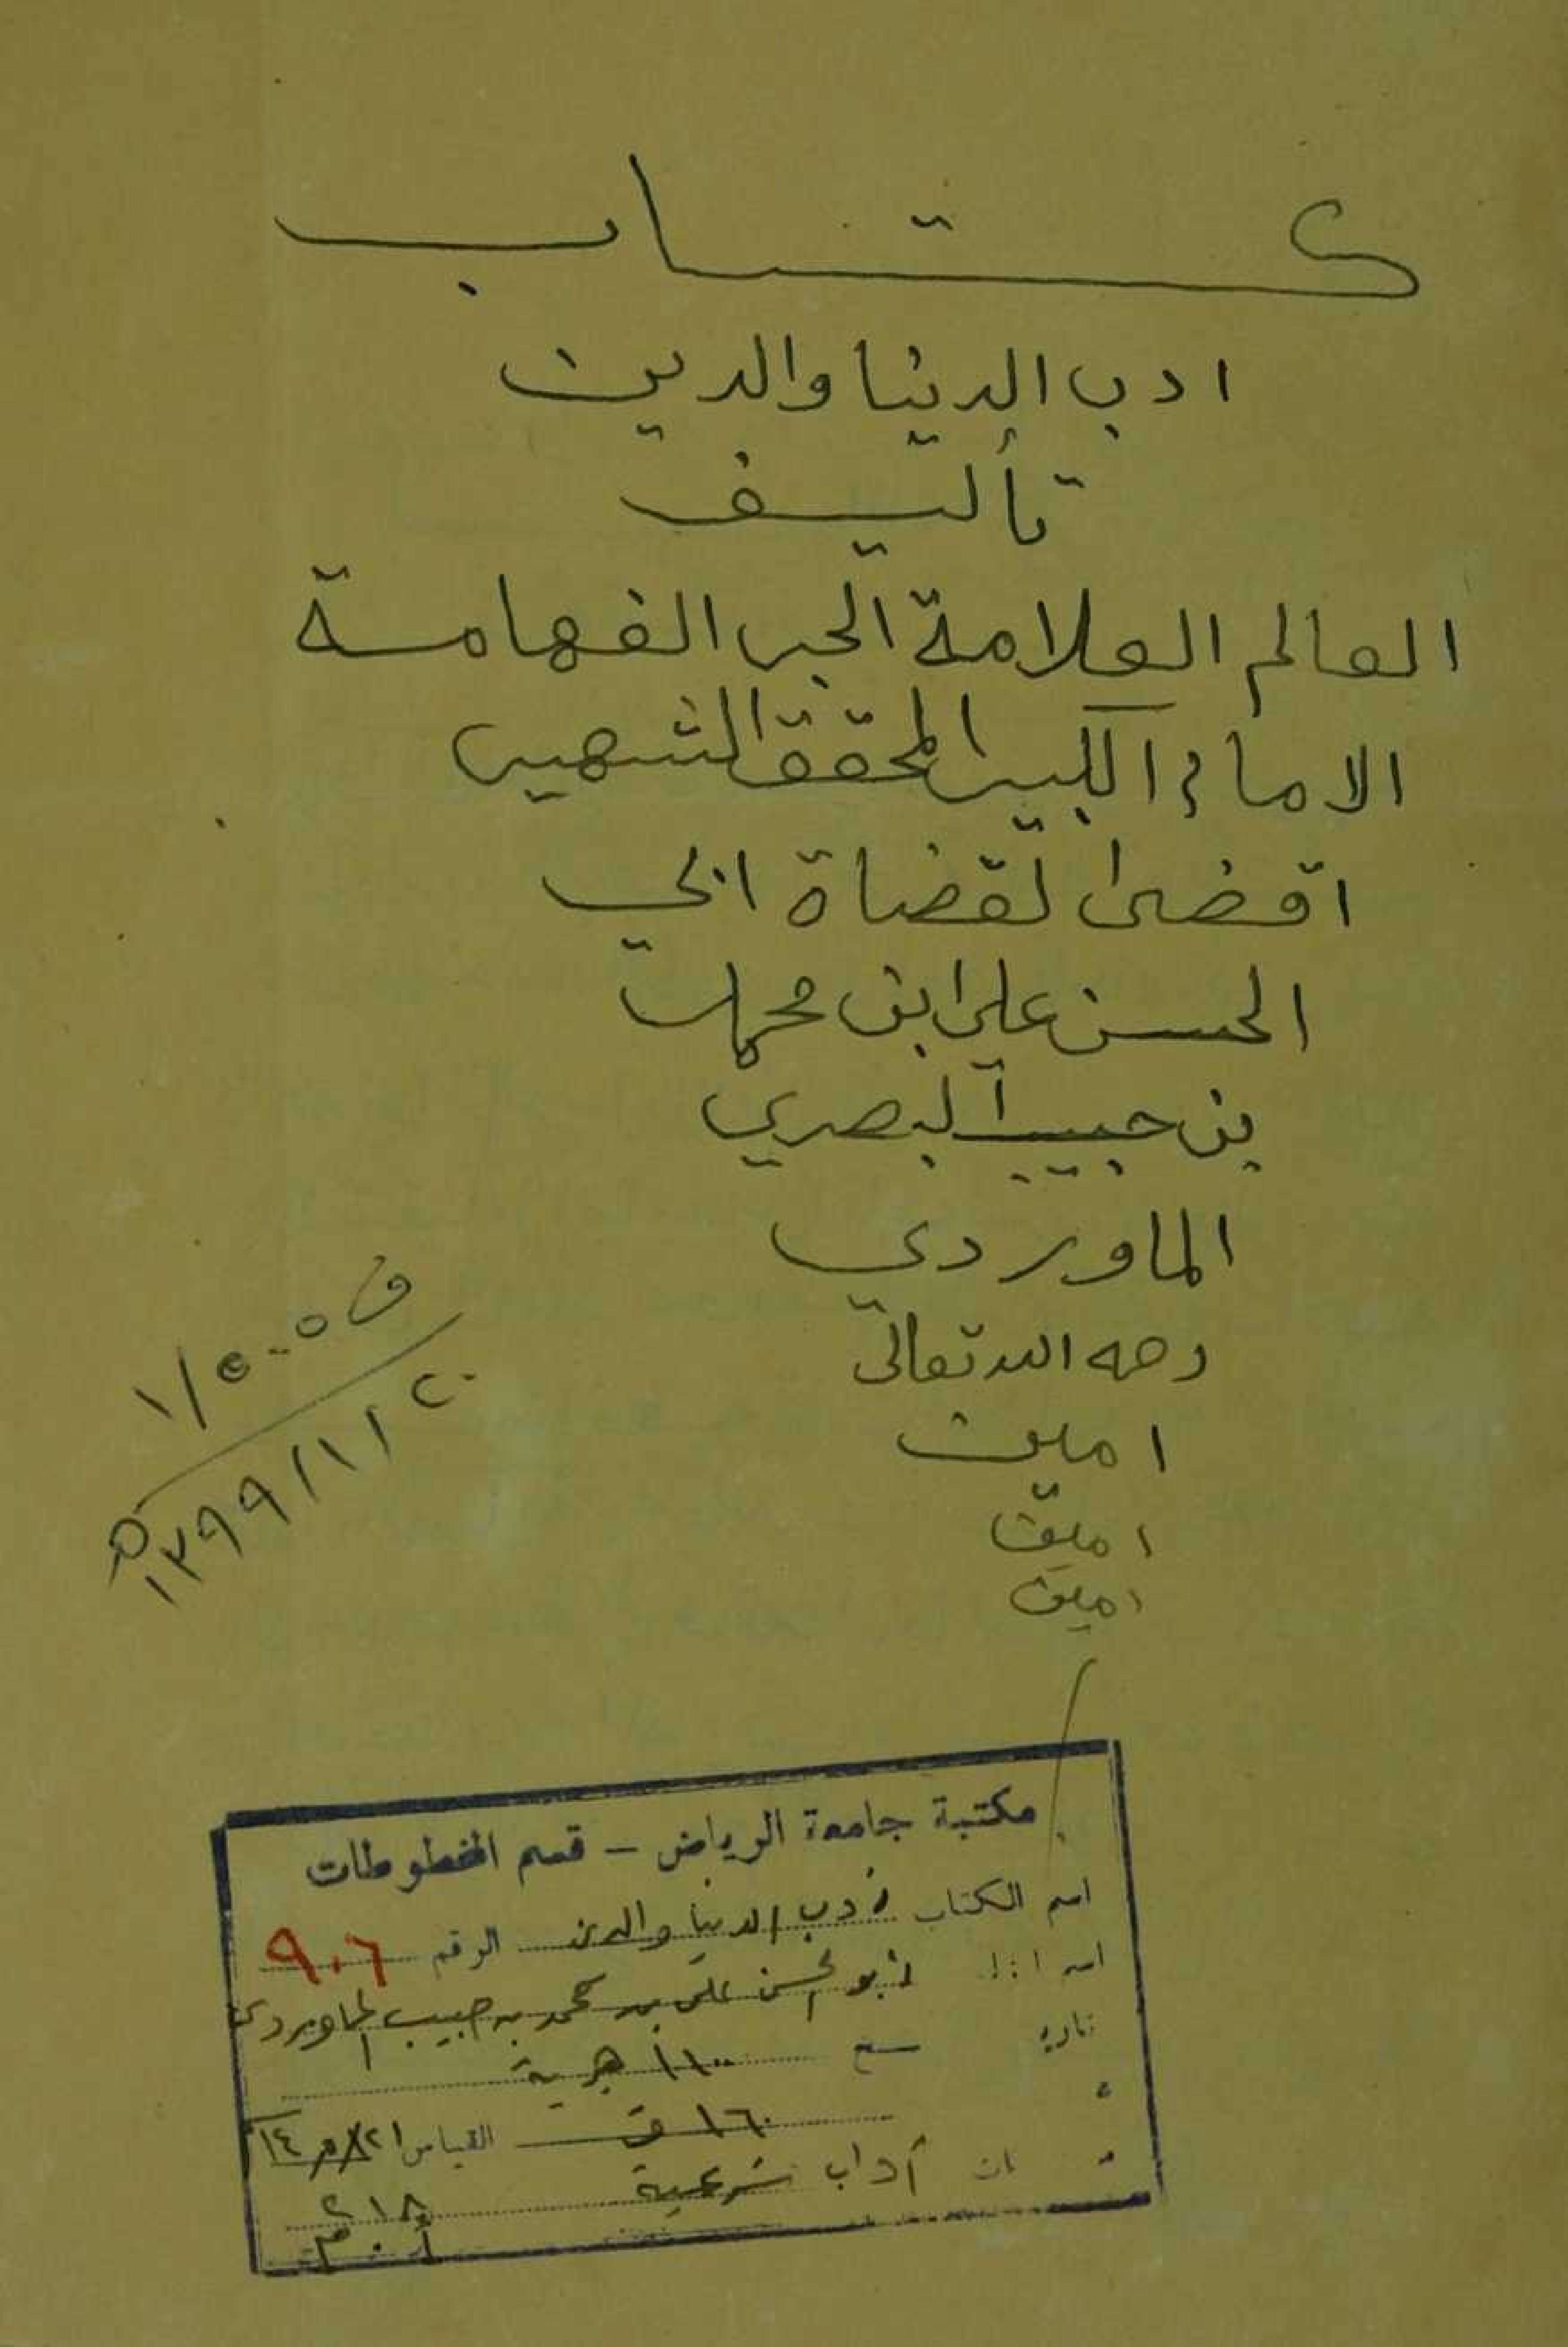 كتاب
ادب الدنيا والدين
تأليف
العالم العلامة الحبر الفهامة
الامام الكبير المحقق الشهير
اقضى القضاة ابي
الحسن على ابن محمد
بن حبيب البصري
الماوردي
رحمه الله تعالى
امين
امين
امين
ف ١/٥٠٥
١٣٩٩/١/٢٠ هـ
مكتبة جامعة الرياض - قسم المخطوطات
اسم الكتاب أدب الدنيا والدين الرقم ٩٠٦
اسم أبو الحسن على بن محمد بن حبيب الماوردي
تاريخ ١١٠٠ هجرية
١٦٠ ق القياس
آداب شرعية
٢١٨